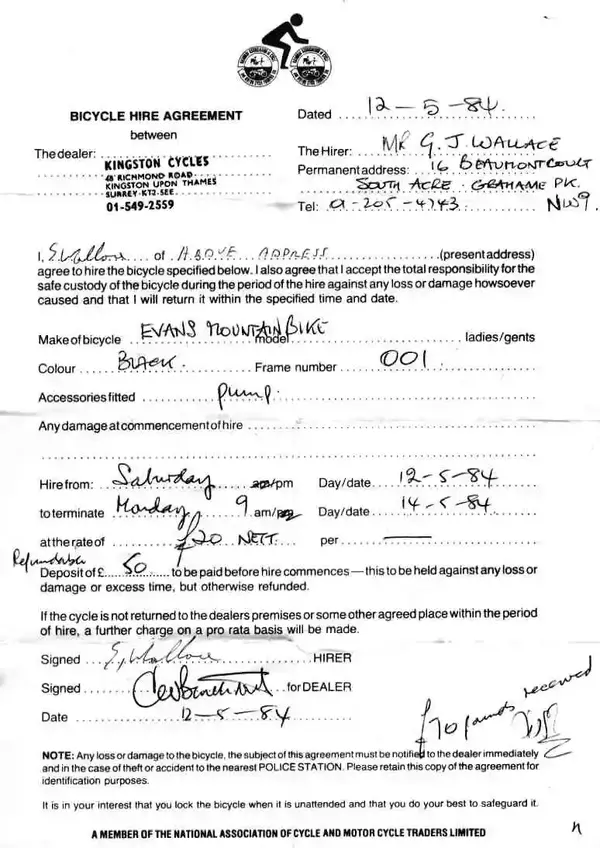 BICYCLE HIRE AGREEMENT
between
The dealer: KINGSTON CYCLES
48 RICHMOND ROAD
KINGSTON UPON THAMES
SURREY - KT2-5EE
01-549-2559
Dated 12-5-84.
The Hirer: Mr G. J. WALLACE
Permanent address: 16 BEAUMONT COURT
SOUTH ACRE - GRAHAME PK.
Tel: 01-205-4743 NW9.
I, of ABOVE ADDRESS (present address)
agree to hire the bicycle specified below. I also agree that I accept the total responsibility for the
safe custody of the bicycle during the period of the hire against any loss or damage howsoever
caused and that I will return it within the specified time and date.
Make of bicycle EVANS MOUNTAIN BIKE model ladies/gents
Colour BLACK. Frame number 001
Accessories fitted pump.
Any damage at commencement of hire
Hire from: Saturday am/pm Day/date 12-5-84
to terminate Monday 9 am/pm Day/date 14-5-84
at the rate of £20 NETT. per —
Refundable
Deposit of £ 50 to be paid before hire commences — this to be held against any loss or
damage or excess time, but otherwise refunded.
If the cycle is not returned to the dealers premises or some other agreed place within the period
of hire, a further charge on a pro rata basis will be made.
Signed HIRER
Signed for DEALER
Date 12-5-84
£70 pounds received
NOTE: Any loss or damage to the bicycle, the subject of this agreement must be notified to the dealer immediately
and in the case of theft or accident to the nearest POLICE STATION. Please retain this copy of the agreement for
identification purposes.
It is in your interest that you lock the bicycle when it is unattended and that you do your best to safeguard it.
A MEMBER OF THE NATIONAL ASSOCIATION OF CYCLE AND MOTOR CYCLE TRADERS LIMITED